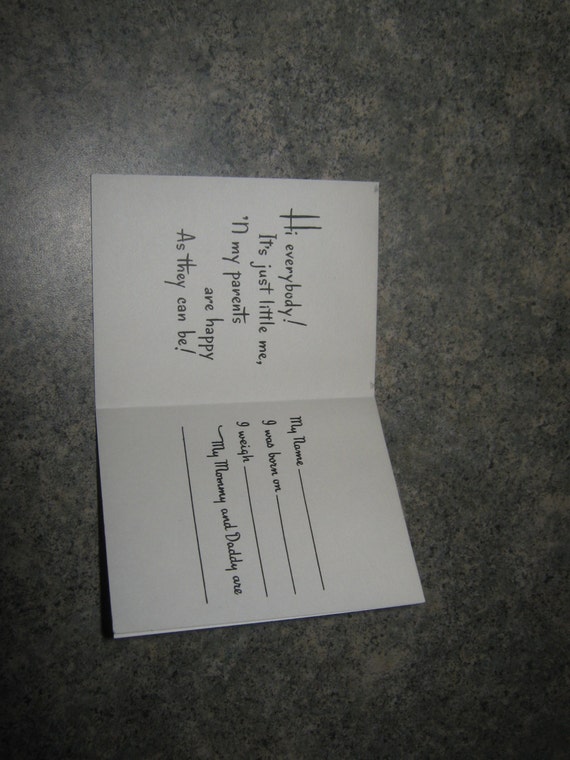 Hi everybody!
It's just little me,
'N my parents
are happy
As they can be!
My Name
I was born on
I weigh
My Mommy and Daddy are